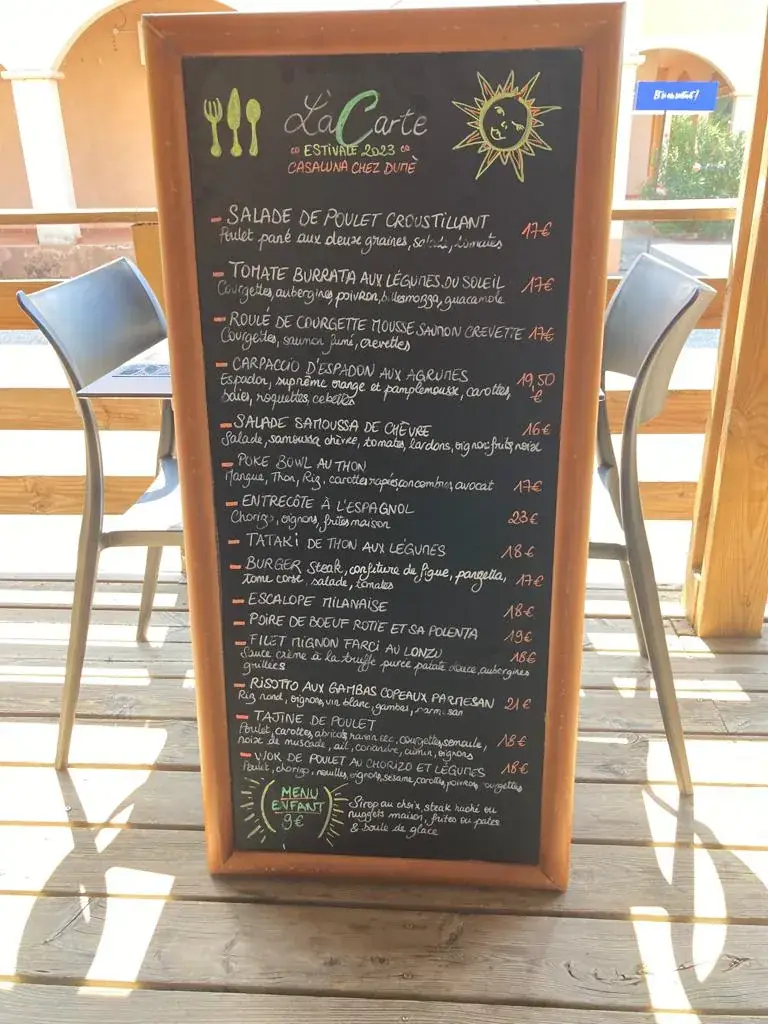 LàCarte
ESTIVALE 2023
CASALUNA CHEZ DUMÈ
- SALADE DE POULET CROUSTILLANT 17€
Poulet pané aux deux graines, salade, tomates
- TOMATE BURRATA AUX LÉGUMES DU SOLEIL 17€
Courgettes, aubergines, poivron, billesmozza, guacamole
- ROULÉ DE COURGETTE MOUSSE SAUMON CREVETTE 17€
Courgettes, saumon fumé, crevettes
- CARPACCIO D'ESPADON AUX AGRUMES 19,50 €
Espadon, suprême orange et pamplemousse, carottes,
baies, roquettes, cebettes
- SALADE SAMOUSSA DE CHÈVRE 16€
Salade, samoussa chèvre, tomates, lardons, oignons frits, noix
- POKE BOWL AU THON
Mangue, Thon, Riz, carottes rapées, concombres, avocat 17€
- ENTRECÔTE À L'ESPAGNOL 23€
Chorizo, oignons, frites maison
- TATAKI DE THON AUX LÉGUMES 18€
- BURGER Steak, confiture de figue, panzetta, 17€
tome corse, salade, tomates
- ESCALOPE MILANAISE 18€
- POIRE DE BOEUF ROTIE ET SA POLENTA 19€
- FILET MIGNON FARCI AU LONZU 18€
Sauce crème à la truffe purée patate douce, aubergines
grillées
- RISOTTO AUX GAMBAS COPEAUX PARMESAN 21€
Riz rond, oignons, vin blanc, gambas, parmesan
- TAJINE DE POULET
Poulet, carottes, abricots, raisin sec, courgettes, semoule, 18€
noix de muscade, ail, coriandre, cumin, oignons
- WOK DE POULET AU CHORIZO ET LÉGUMES 18€
Poulet, chorizo, nouilles, oignons, sesame, carottes, poivrons, courgettes
MENU
ENFANT
9€
Sirop au choix, steak haché ou
nuggets maison, frites ou pates
& boule de glace